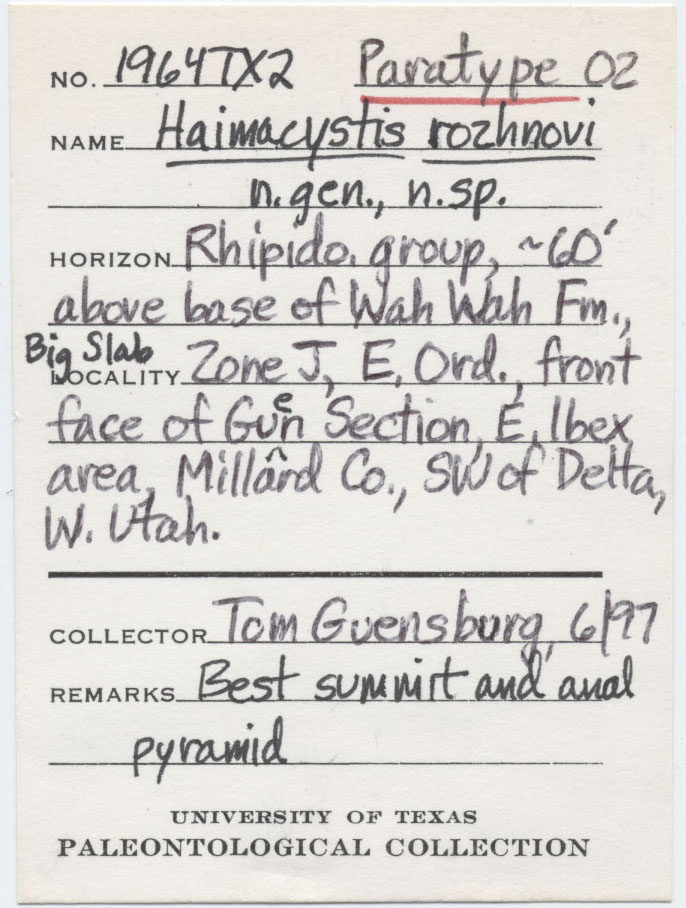 NO. 1964TX2 Paratype 02
NAME Haimacystis rozhnovi
n.gen., n.sp.
HORIZON Rhipido. group, ~60'
above base of Wah Wah Fm.,
Big Slab
LOCALITY Zone J, E. Ord., front
face of Guen Section, E. Ibex
area, Millard Co., SW of Delta,
W. Utah.
COLLECTOR Tom Guensburg, 6/97
REMARKS Best summit and anal
pyramid
UNIVERSITY OF TEXAS
PALEONTOLOGICAL COLLECTION